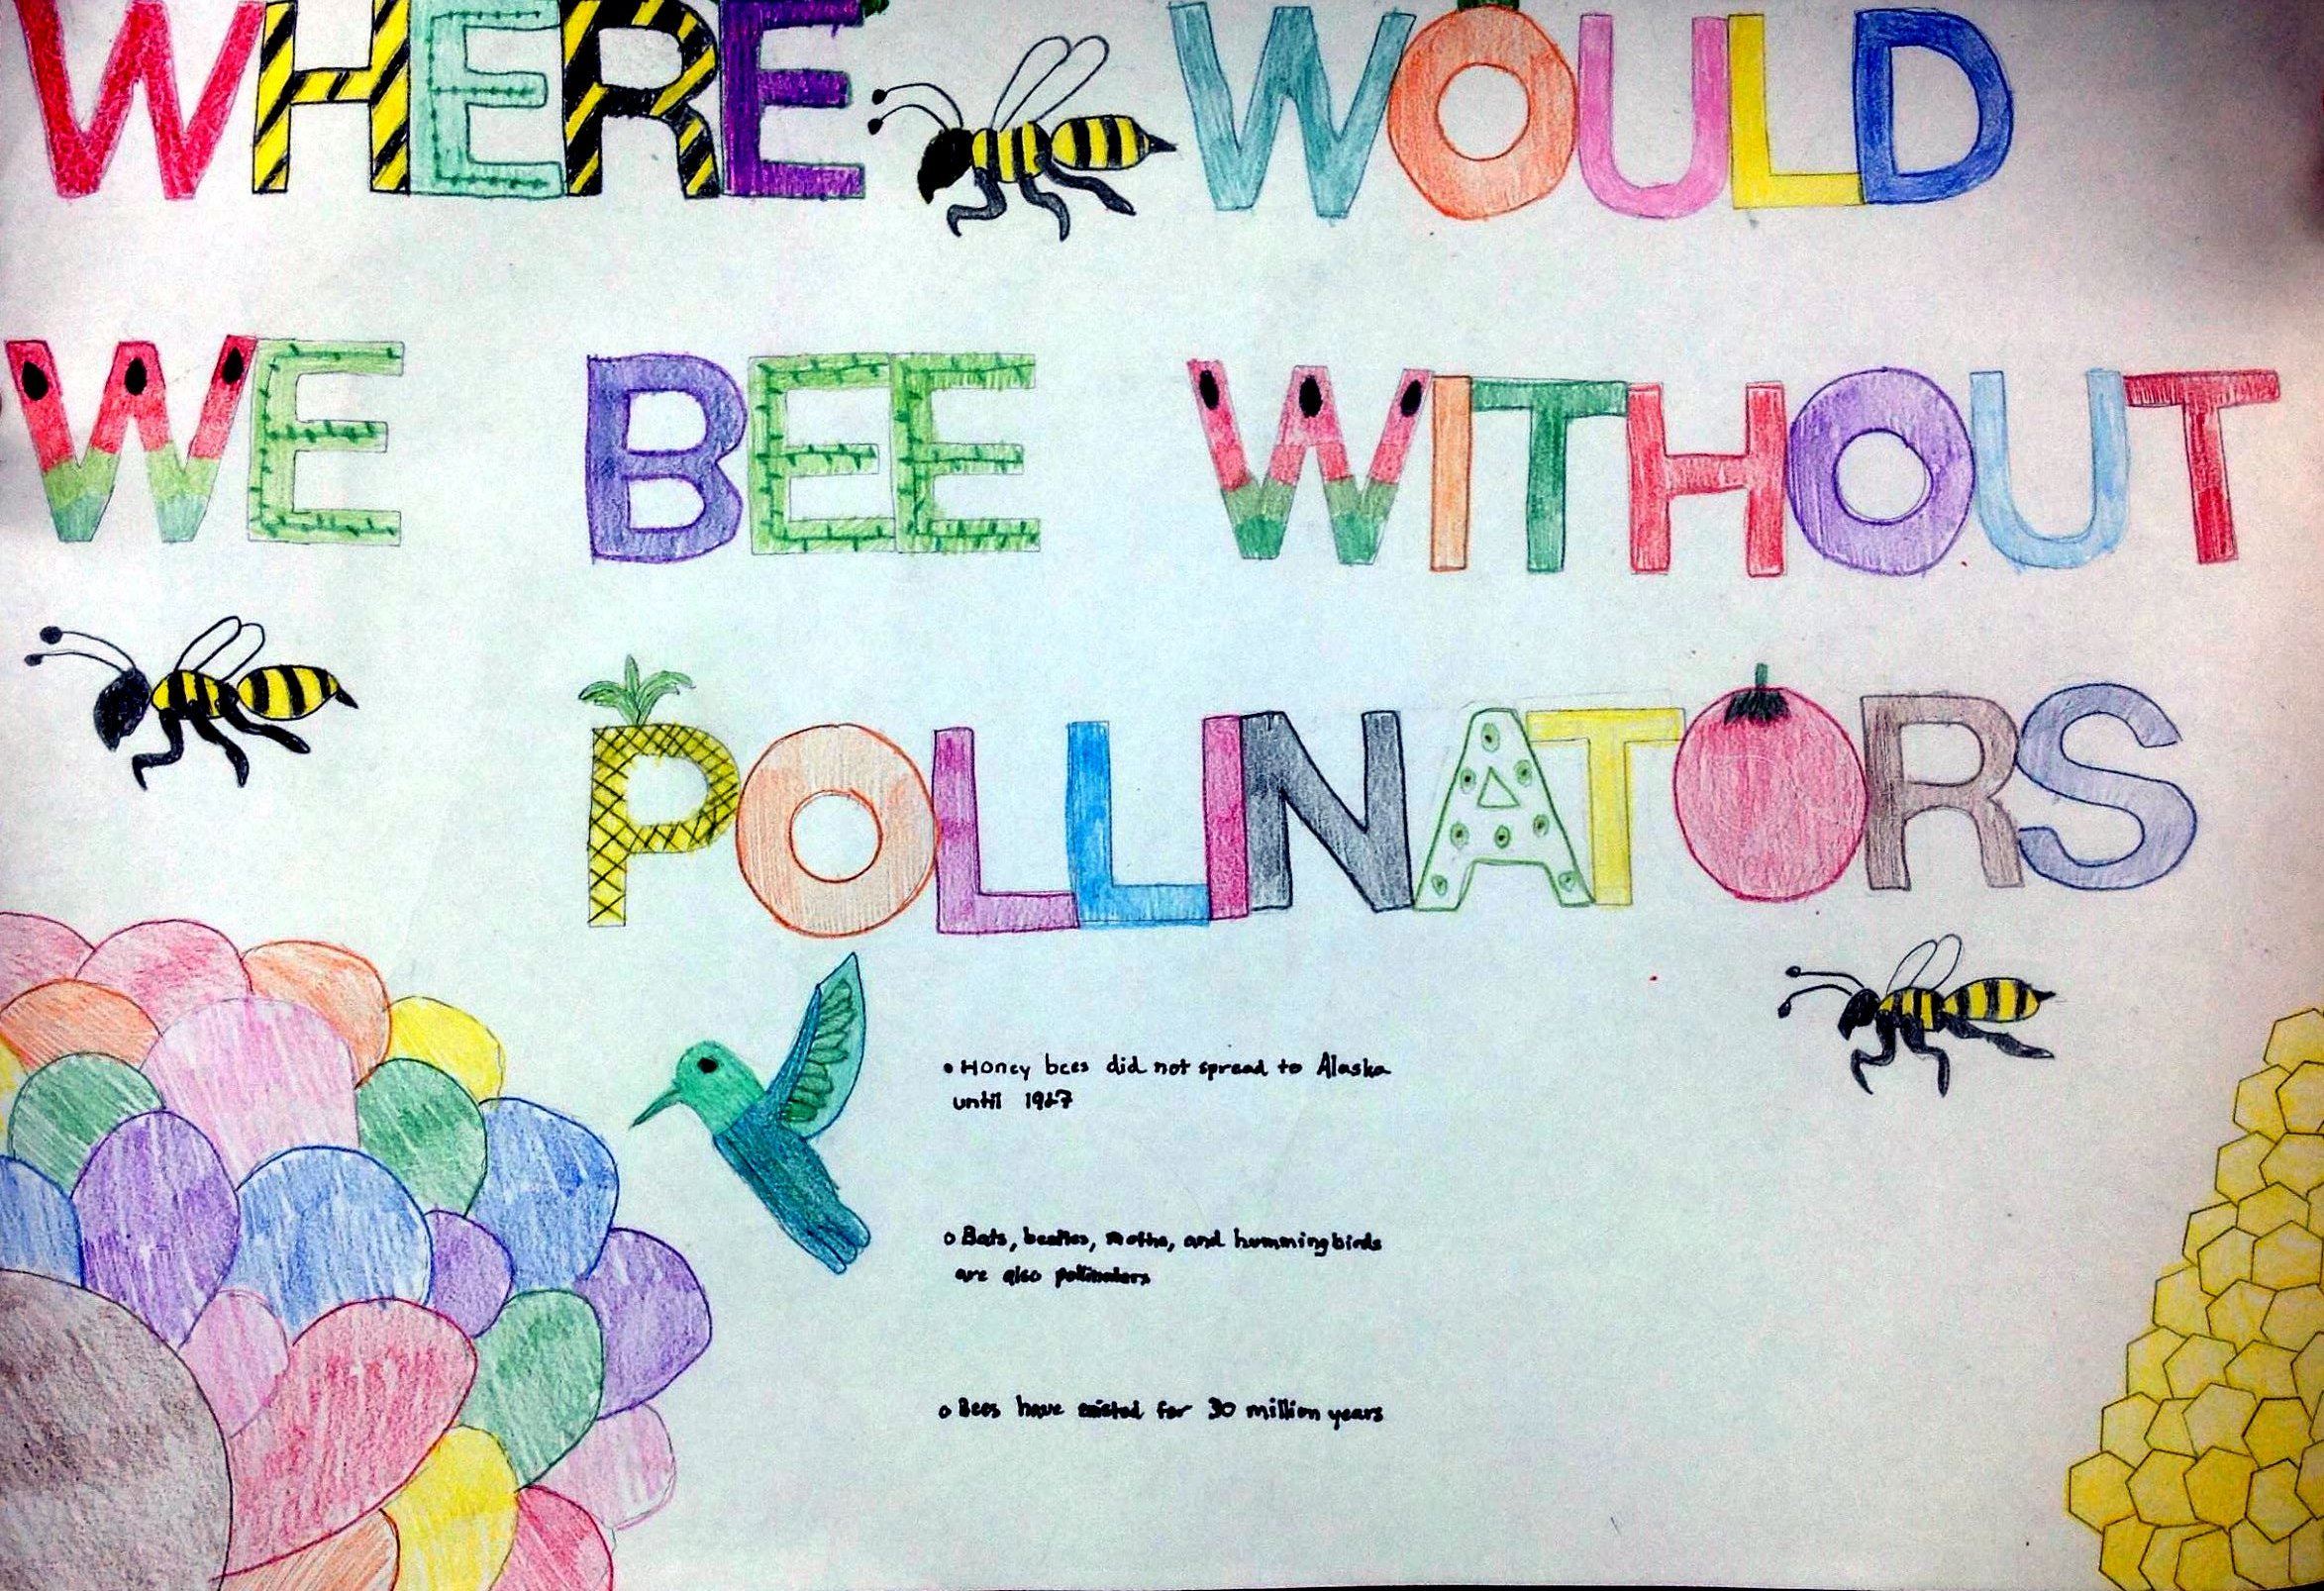 WHERE WOULD
WE BEE WITHOUT
POLLINATORS
• Honey bees did not spread to Alaska
until 1927
o Bats, beetles, moths, and hummingbirds
are also pollinators
o Bees have existed for 30 million years